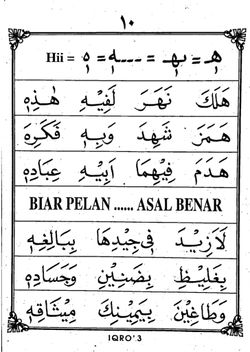 ١٠
Hii = هٖ = ـهٖ --- ـهٖ = هٖ
هَلَكَ نَهَرَ لَفِيْهِ هٰذِهٖ
هَمَزَ شَهِدَ وَبِهٖ فَكَرِهَ
هَدَمَ فِيْهِمَا اَبِيْهِ عِبَادِهٖ
BIAR PELAN ...... ASAL BENAR
لَازِيْدَ فِيْ جِيْدِهَا بِبَالِغِهٖ
بِغَلِيْظٍ بِضَنِيْنٍ وَحَسَادِهٖ
وَطَاغِيْنَ بِيَمِيْنِكَ مِيْثَاقِهٖ
IQRO' 3